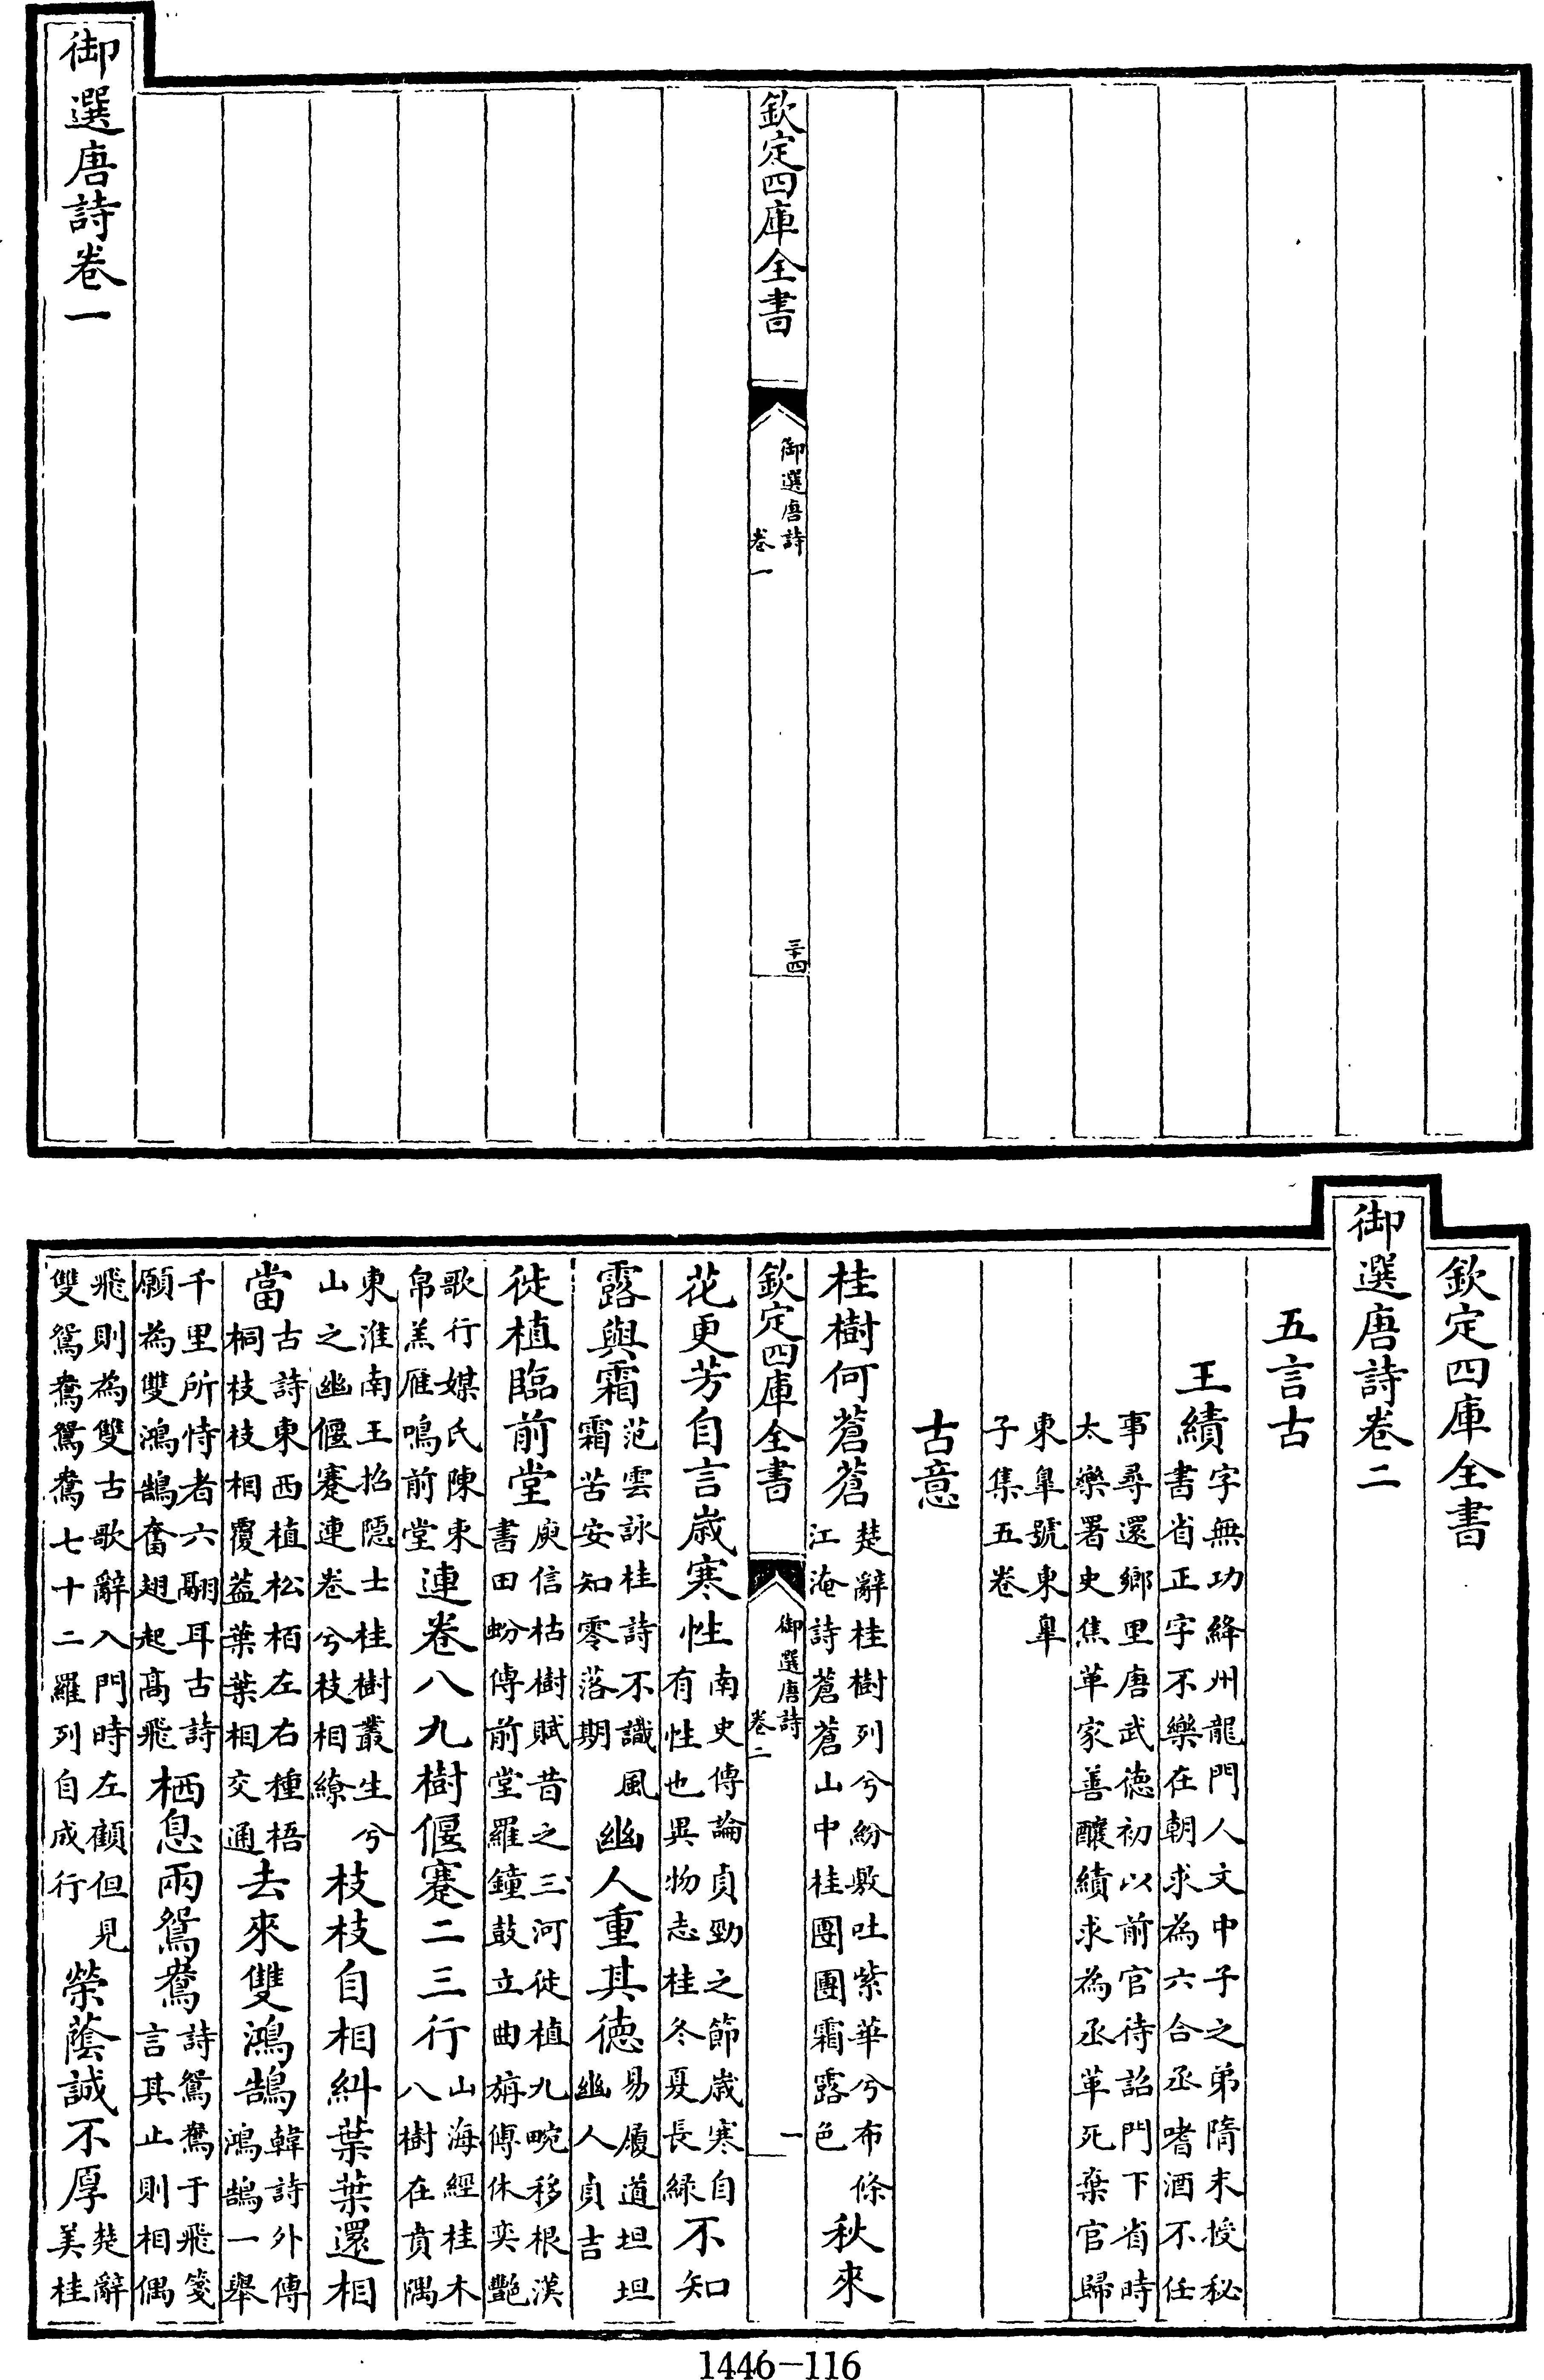 欽定四庫全書
御選唐詩
卷一
三十四
御選唐詩卷一
欽定四庫全書
御選唐詩卷二
五言古
王績字無功絳州龍門人文中子之弟隋末授秘書省正字不樂在朝求為六合丞嗜酒不任
事尋還鄉里唐武徳初以前官待詔門下省時太樂署史焦革家善釀績求為丞革死棄官歸
東臯號東臯子集五卷
古意
桂樹何蒼蒼楚辭桂樹列兮紛敷吐紫華兮布條江淹詩蒼蒼山中桂團團霜露色秋來
欽定四庫全書
御選唐詩
卷二
一
花更芳自言嵗寒性南史傳論貞勁之節嵗寒自有性也異物志桂冬夏長緑不知
露與霜范雲詠桂詩不識風霜苦安知零落期幽人重其徳易履道坦坦幽人貞吉
徙植臨前堂庾信枯樹賦昔之三河徙植九畹移根漢書田蚡傳前堂羅鐘鼓立曲旃傅休奕艷
歌行媒氏陳束帛羔雁鳴前堂連卷八九樹偃蹇二三行山海經桂木八樹在賁隅
東淮南王招隱士桂樹叢生兮山之幽偃蹇連卷兮枝相繚枝枝自相糾葉葉還相
當古詩東西植松栢左右種梧桐枝枝相覆葢葉葉相交通去來雙鴻鵠韓詩外傳鴻鵠一舉
千里所恃者六翮耳古詩願為雙鴻鵠奮翅起髙飛栖息兩鴛鴦詩鴛鴦于飛箋言其止則相偶
飛則為雙古歌辭入門時左顧但見雙鴛鴦鴛鴦七十二羅列自成行榮蔭誠不厚楚辭美桂
1446-116